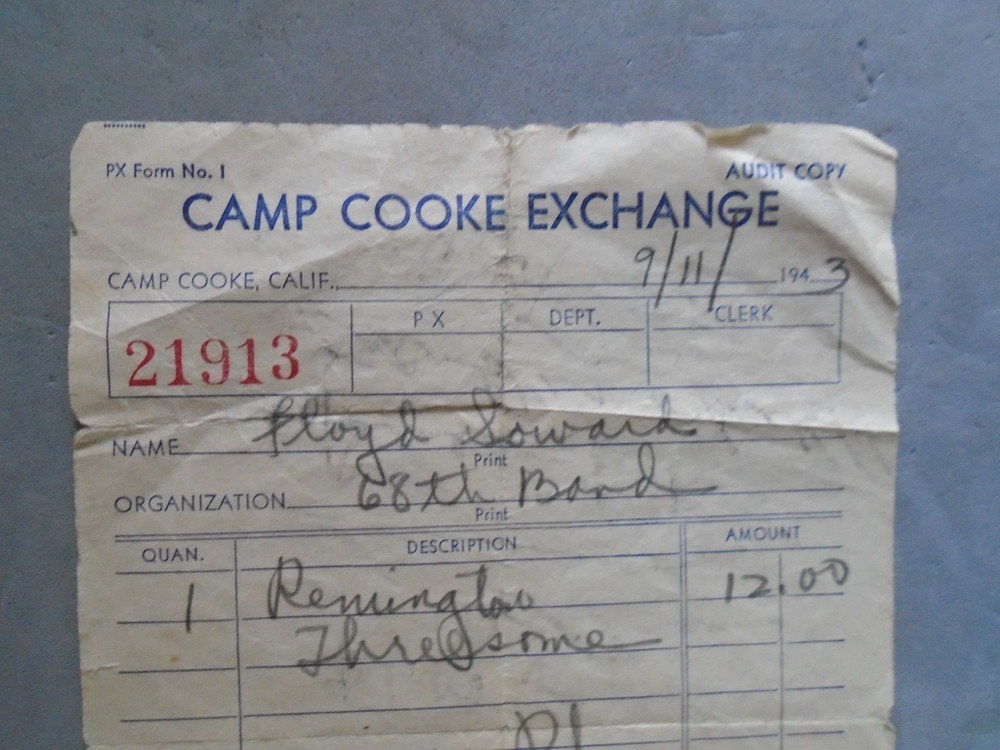 PX Form No. 1 AUDIT COPY
CAMP COOKE EXCHANGE
CAMP COOKE, CALIF., 9/11/ 1943
PX DEPT. CLERK
21913
NAME Floyd Soward
Print
ORGANIZATION 68th Band
Print
QUAN. DESCRIPTION AMOUNT
1 Remington 12.00
Threesome